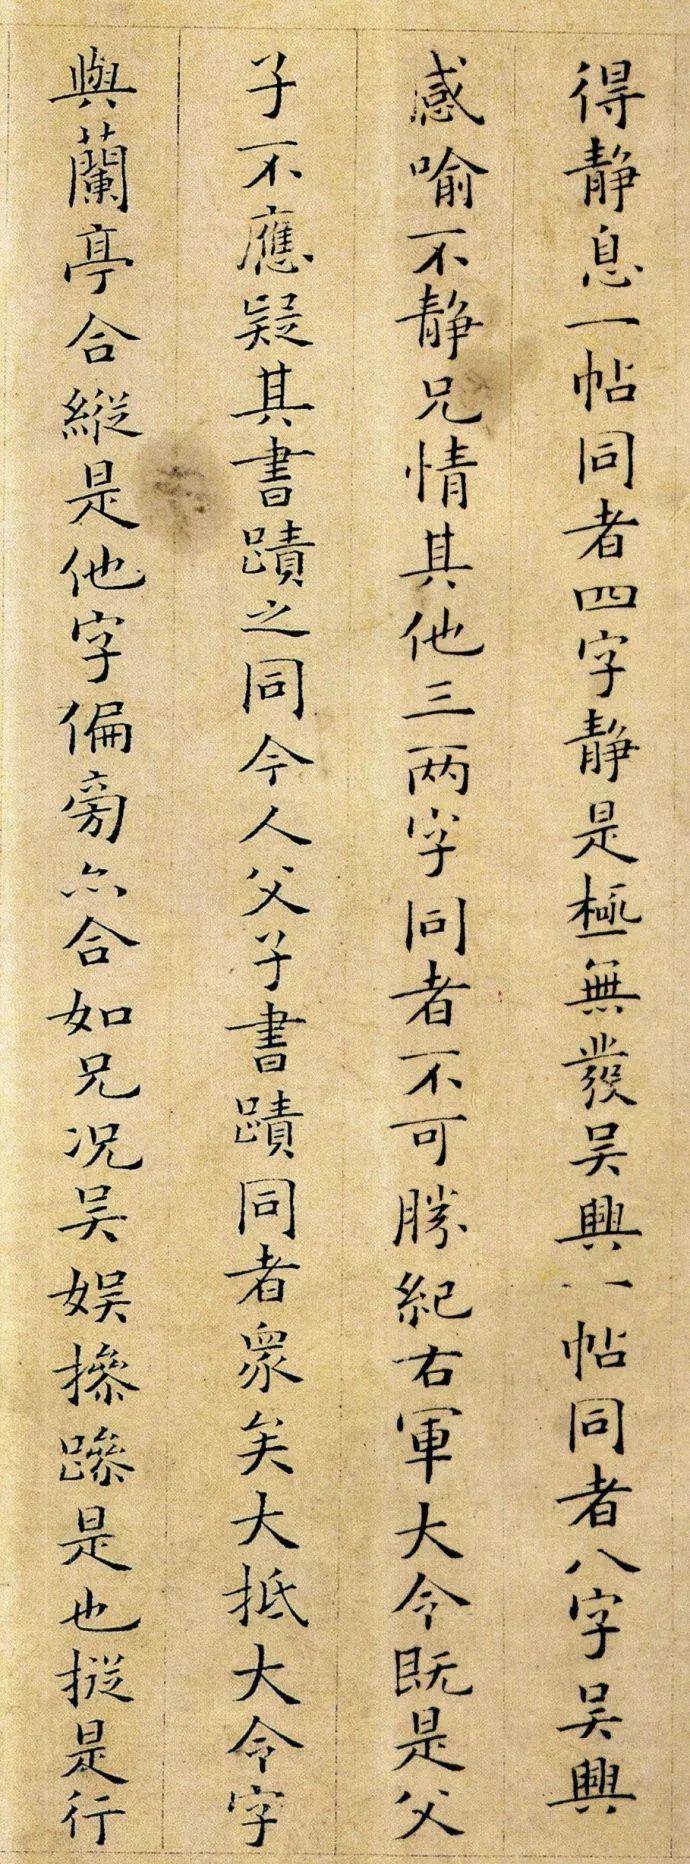 得静息一帖同者四字静是極無發吴興一帖同者八字吴興
感喻不静兄情其他三两字同者不可勝紀右軍大令既是父
子不應疑其書蹟之同今人父子書蹟同者衆矣大抵大令字
與蘭亭合縱是他字偏旁亦合如兄况吴娱摻蹂是也摐是行